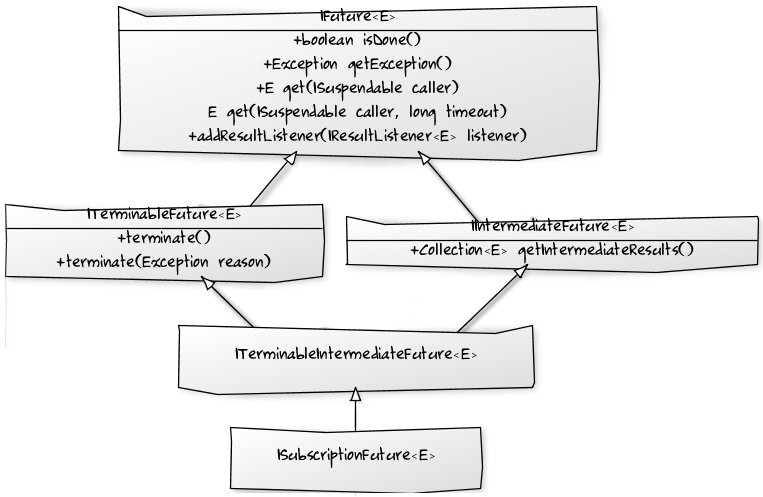 IFuture<E>
+boolean isDone()
+Exception getException()
+E get(ISuspendable caller)
E get(ISuspendable caller, long timeout)
+addResultListener(IResultListener<E> listener)
ITerminableFuture<E>
+terminate()
+terminate(Exception reason)
IIntermediateFuture<E>
+Collection<E> getIntermediateResults()
ITerminableIntermediateFuture<E>
ISubscriptionFuture<E>